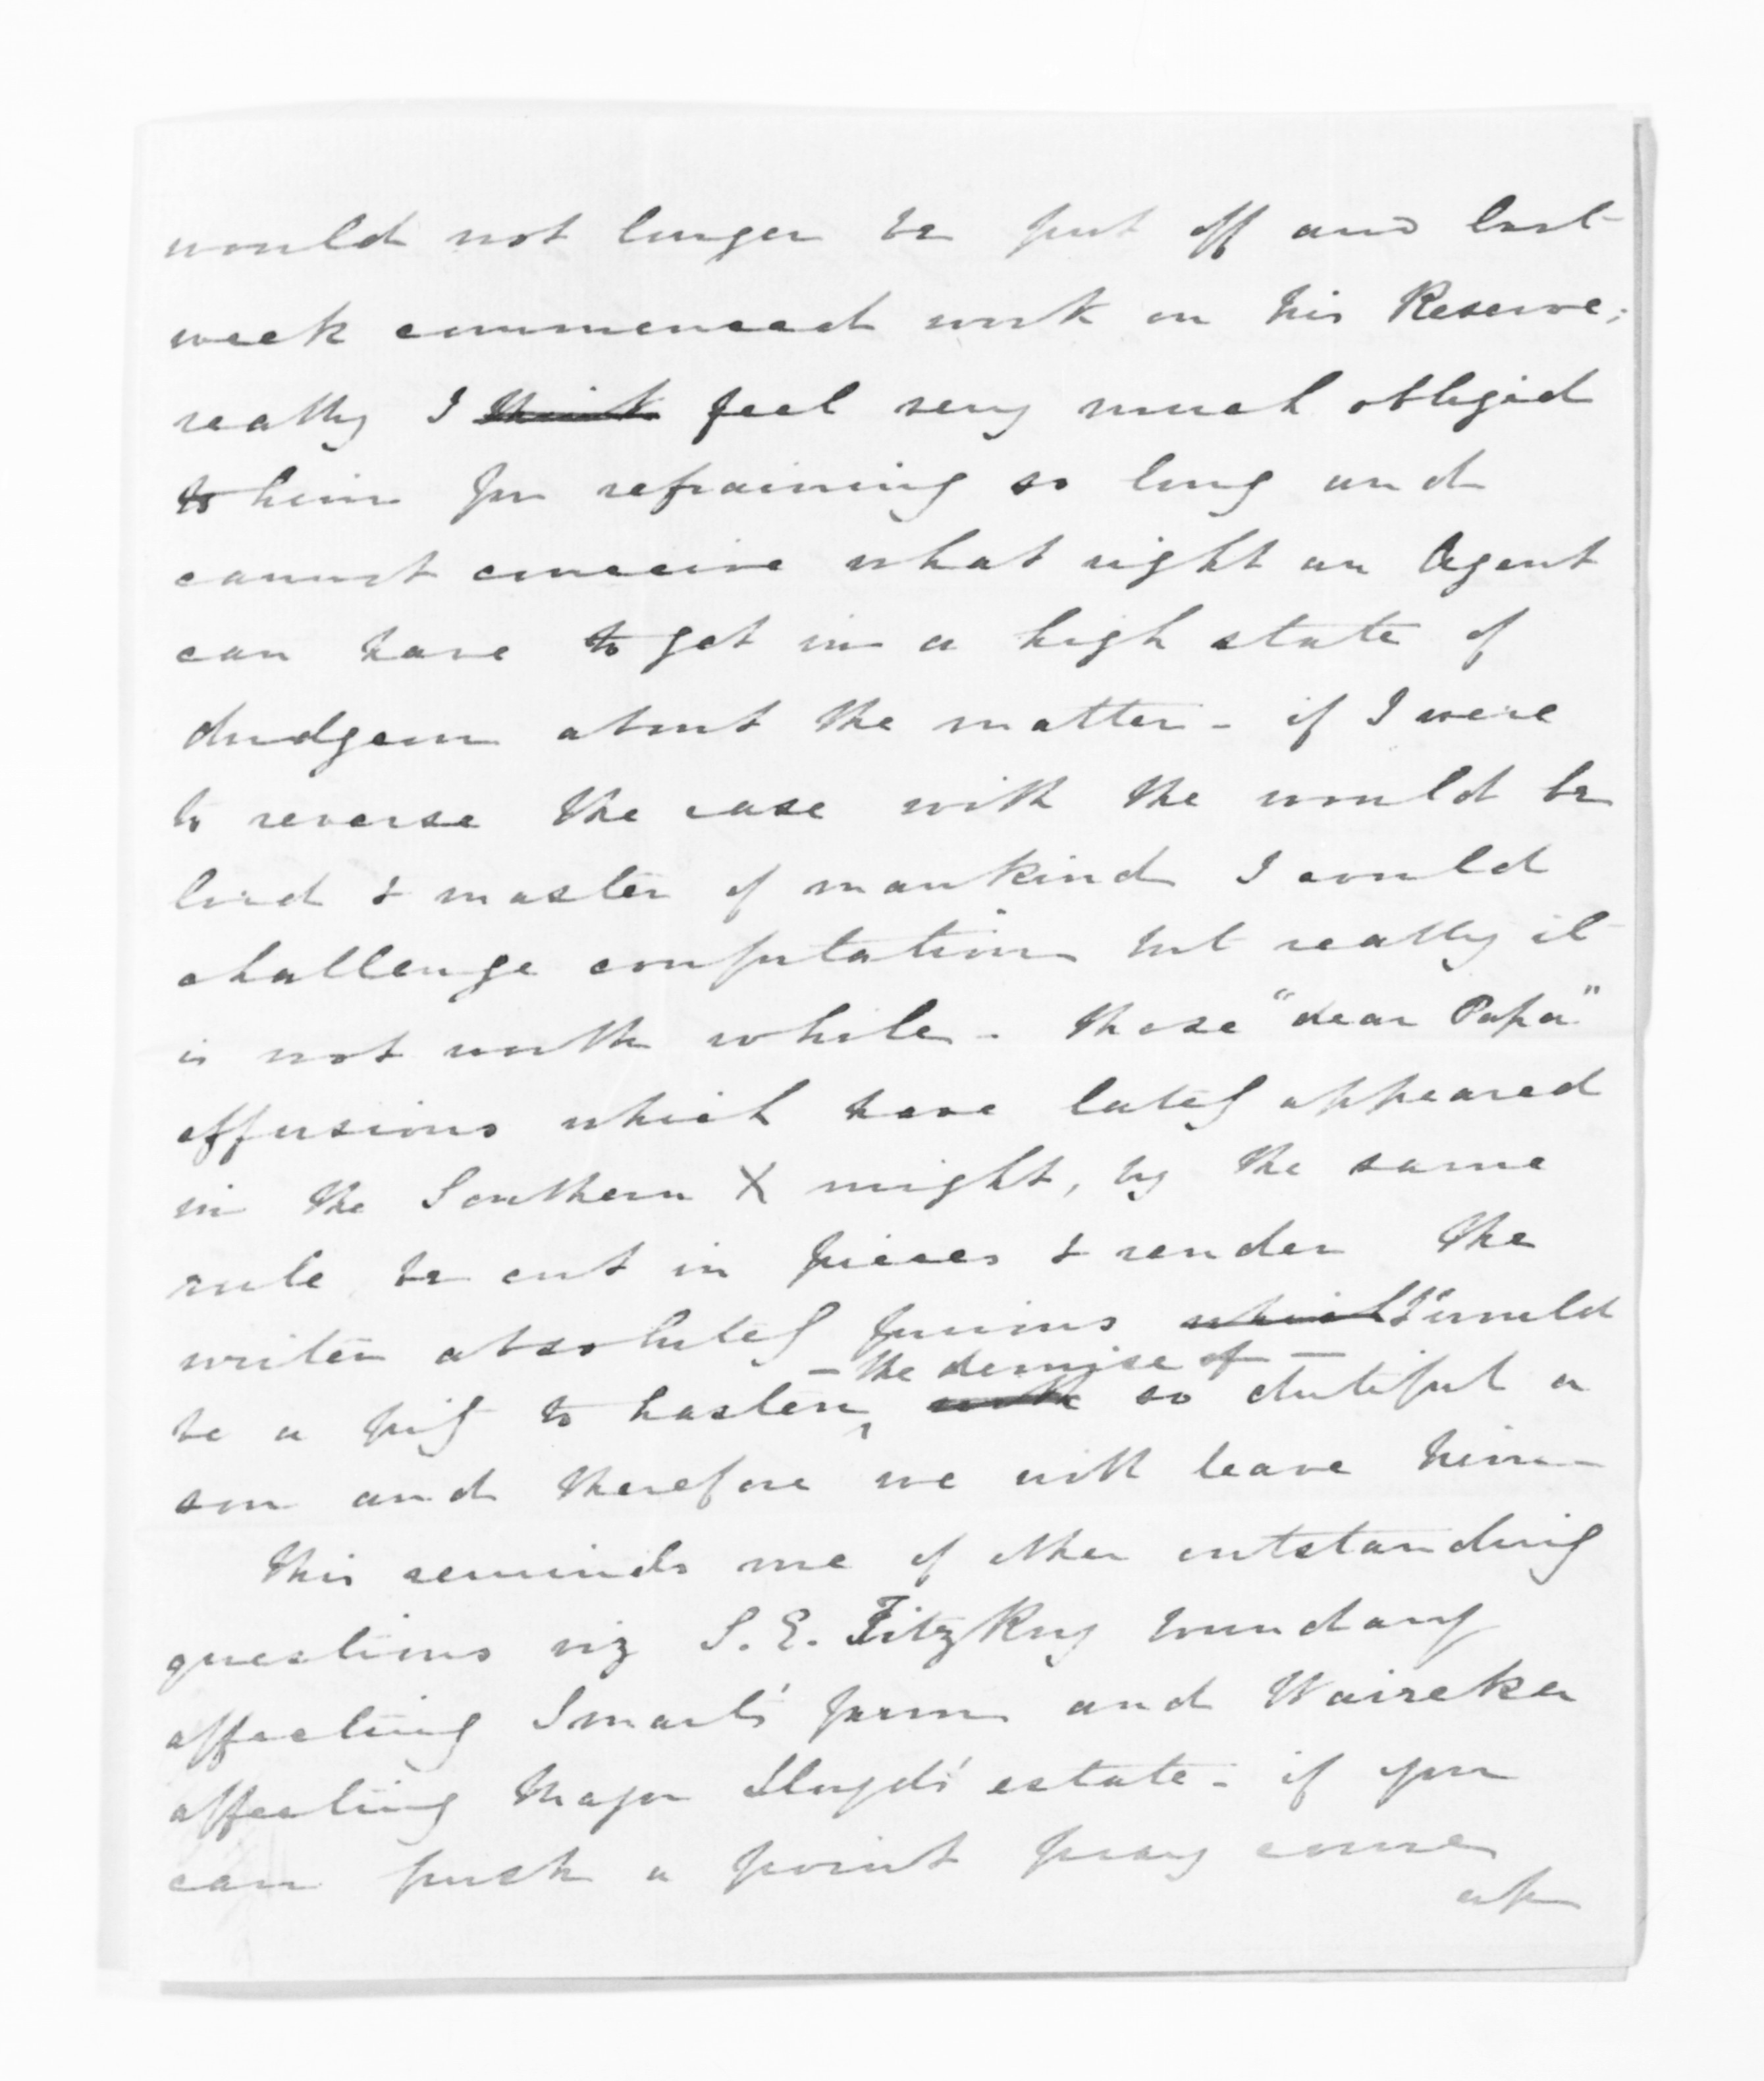 would not longer be put off and last
week commenced work on his Reserve;
really I think feel very much obliged
to him for refraining so long and
cannot conceive what right an Agent
can have to get in a high state of
dudgeon about the matter - if I were
to reverse the case with the would be
lord & master of mankind I could
challenge confutation but really it
is not worth while - those "dear Papa"
effusions which have lately appeared
in the Southern X might, by the same
rule be cut in pieces & render the
writer absolutely furious which would
- the demise of -
be a pity to hasten, with so dutiful a
son and therefore we will leave him -
This reminds me of other outstanding
questions viz S. E. FitzRoy boundary
affecting Smart's farm and Waireka
affecting Major Lloyd's estate - if you
can push a point pray come
up